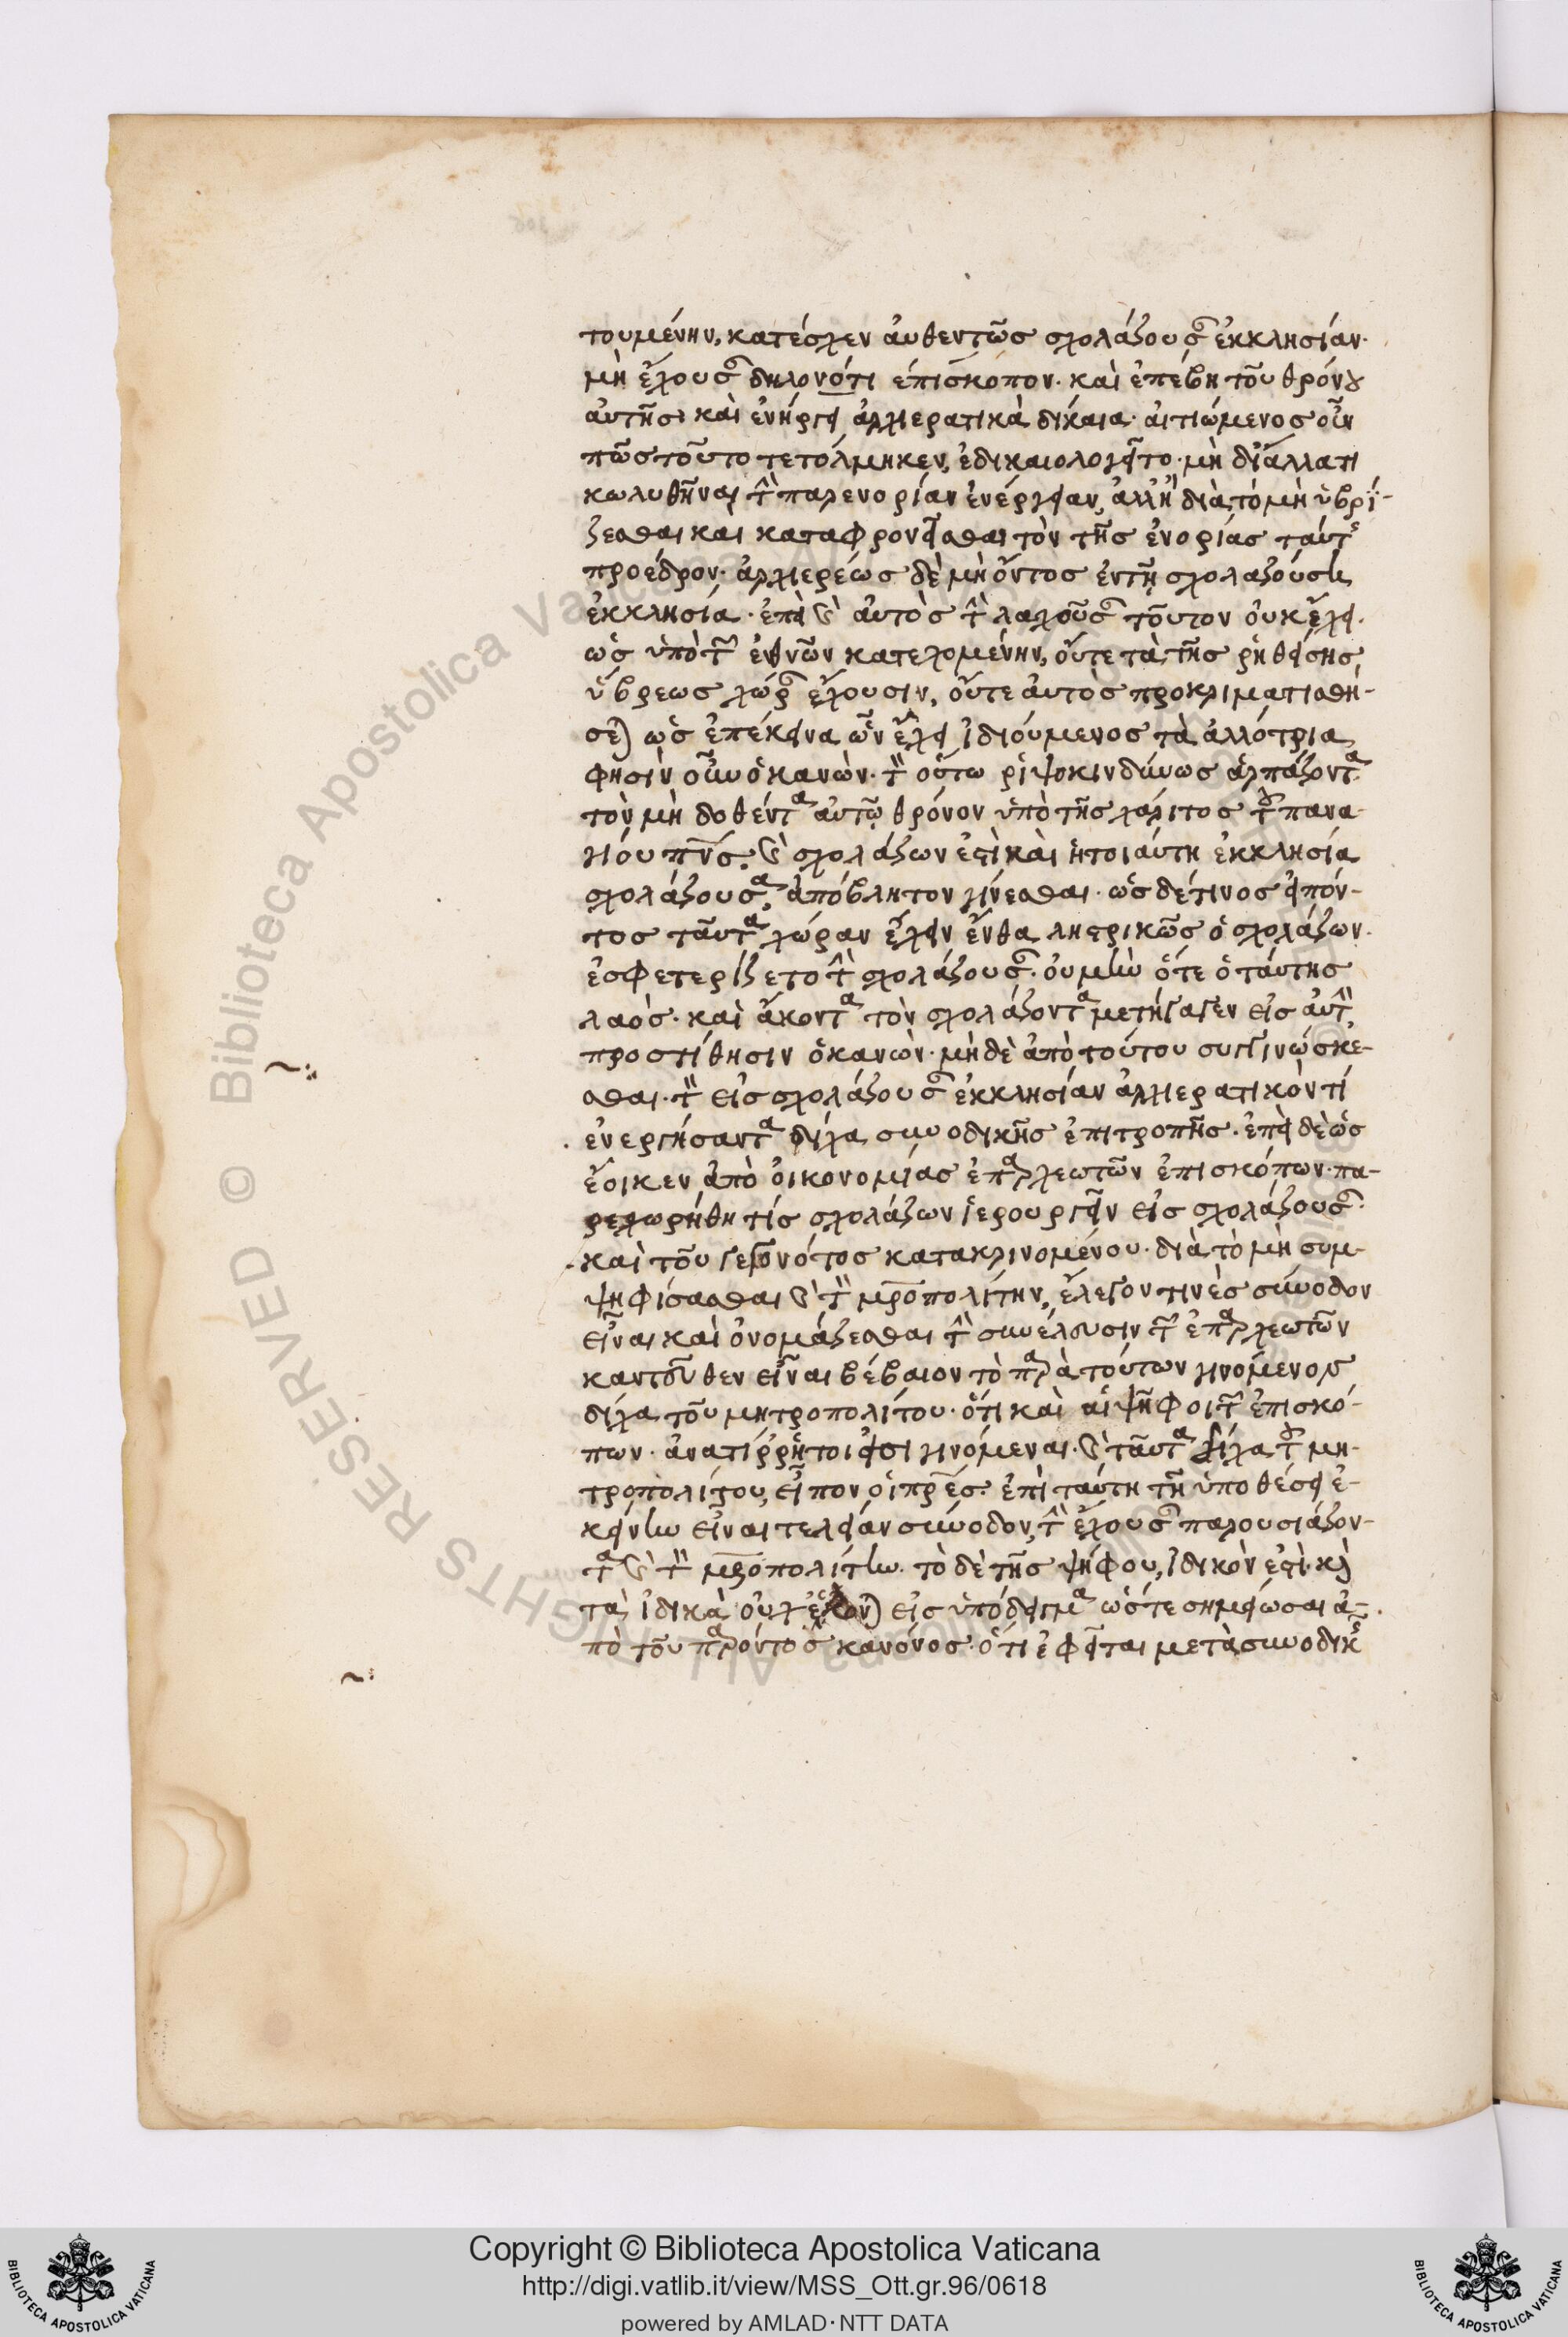 τουμένην, κατέσχεν αὐθεντῶς σχολάζουσαν ἐκκλησίαν·
μὴ ἔχουσαν δηλονότι ἐπίσκοπον· καὶ ἐπέβη τοῦ θρόνου
αὐτῆς· καὶ ἐνήργει ἀρχιερατικὰ δίκαια· αἰτιώμενος οὖν
πῶς τοῦτο τετόλμηκεν, ἐδικαιολογεῖτο· μὴ δι' ἄλλό τι
κωλυθῆναι τὴν παρενορίαν ἐνέργειαν, ἀλλ' ἢ διὰ τὸ μὴ ὑβρί-
ζεσθαι και καταφρονεῖσθαι τὸν τῆς ἐνορίας ταύτης
πρόεδρον· ἀρχιερέως δὲ μὴ ὄντος ἐν τῇ σχολαζούσῃ
ἐκκλησία· ἐπεὶ καὶ αὐτὸς τὴν λαχοῦσαν τοῦτον οὐκ εἶχε·
ὡς ὑπὸ τῶν ἐθνῶν κατεχομένην, οὔτε τὰ τῆς ῥηθείσης
ὕβρεως χώραν ἔχουσιν, οὔτε αὐτὸς προκριματισθή-
σεται ὡς ἐπέκεινα ὧν εἶχε ἰδιούμενος τὰ ἀλλότρια
φησὶν οὖν ὁ κανών· τὸν οὕτω ῥιψοκινδύνως ἁρπάζοντα
τὸν μὴ δοθέντα αὐτῷ θρόνον ὑπὸ τῆς χάριτος τοῦ πανα-
γίου πνς· καὶ σχολάζων ἐστὶ καὶ ἡ τοιαύτη ἐκκλησία
σχολάζουσα, ἀπόβλητον γίνεσθαι· ὡς δέ τινος εἰπόν-
τος ταῦτα χώραν ἔχειν ἔνθα ληστρικῶς ὁ σχολάζων
ἐσφετερίζετο τὴν σχολάζουσαν· οὐ μὴν ὅτε ὁ ταύτης
λαὸς· καὶ ἄκοντα τὸν σχολάζοντα μετήγαγεν εἰς αὐτὴν,
προστίθησιν ὁ κανών· μὴ δὲ ἀπὸ τούτου συγγινώσκε-
σθαι· τὸν εἰς σχολάζουσαν ἐκκλησίαν ἀρχιερατικόν τί
ἐνεργήσαντα δίχα συνοδικῆς ἐπιτροπῆς· ἐπεὶ δὲ ὡς
ἔοικεν ἀπὸ οἰκονομίας ἐπαρχεωτῶν ἐπισκόπων· πα-
ρεχωρήθη τίς σχολάζων ἱερουργεῖν εἰς σχολάζουσαν·
καὶ τοῦ γεγονότος κατακρινομένου· διὰ τὸ μὴ συμ-
ψηφίσασθαι καὶ τὸν μροπολίτην, ἔλεγον τινὲς σύνοδον
εἶναι καὶ ὀνομάζεσθαι τὴν συνέλευσιν τῶν ἐπαρχεωτῶν
καντεῦθεν εἶναι βέβαιον τὸ παρὰ τούτων γινόμενον
δίχα τοῦ μητροπολίτου· ὅτι καὶ αἱ ψῆφοι τῶν ἐπισκό-
πων· ἀνατίρρητοι εἰσι γινόμεναι· καὶ ταῦτα δίχα τοῦ μη-
τροπολίτου, εἶπον οἱ πρες· ἐπὶ ταύτῃ τῇ ὑποθέσει ἐ-
κείνην εἶναι τελείαν σύνοδον, τὴν ἔχουσαν παρουσιάζον-
τα καὶ τὸν μροπολίτην· τὸ δὲ τῆς ψήφου, ἰδικόν ἐστι· καὶ
τὰ ἰδικὰ οὐχ ἕλκονται εἰς ὑπόδειγμα ὥστε σημείωσαι ἀ-
πὸ τοῦ παρόντος κανόνος· ὅτι ἐφεῖται μετὰ συνοδικῆς